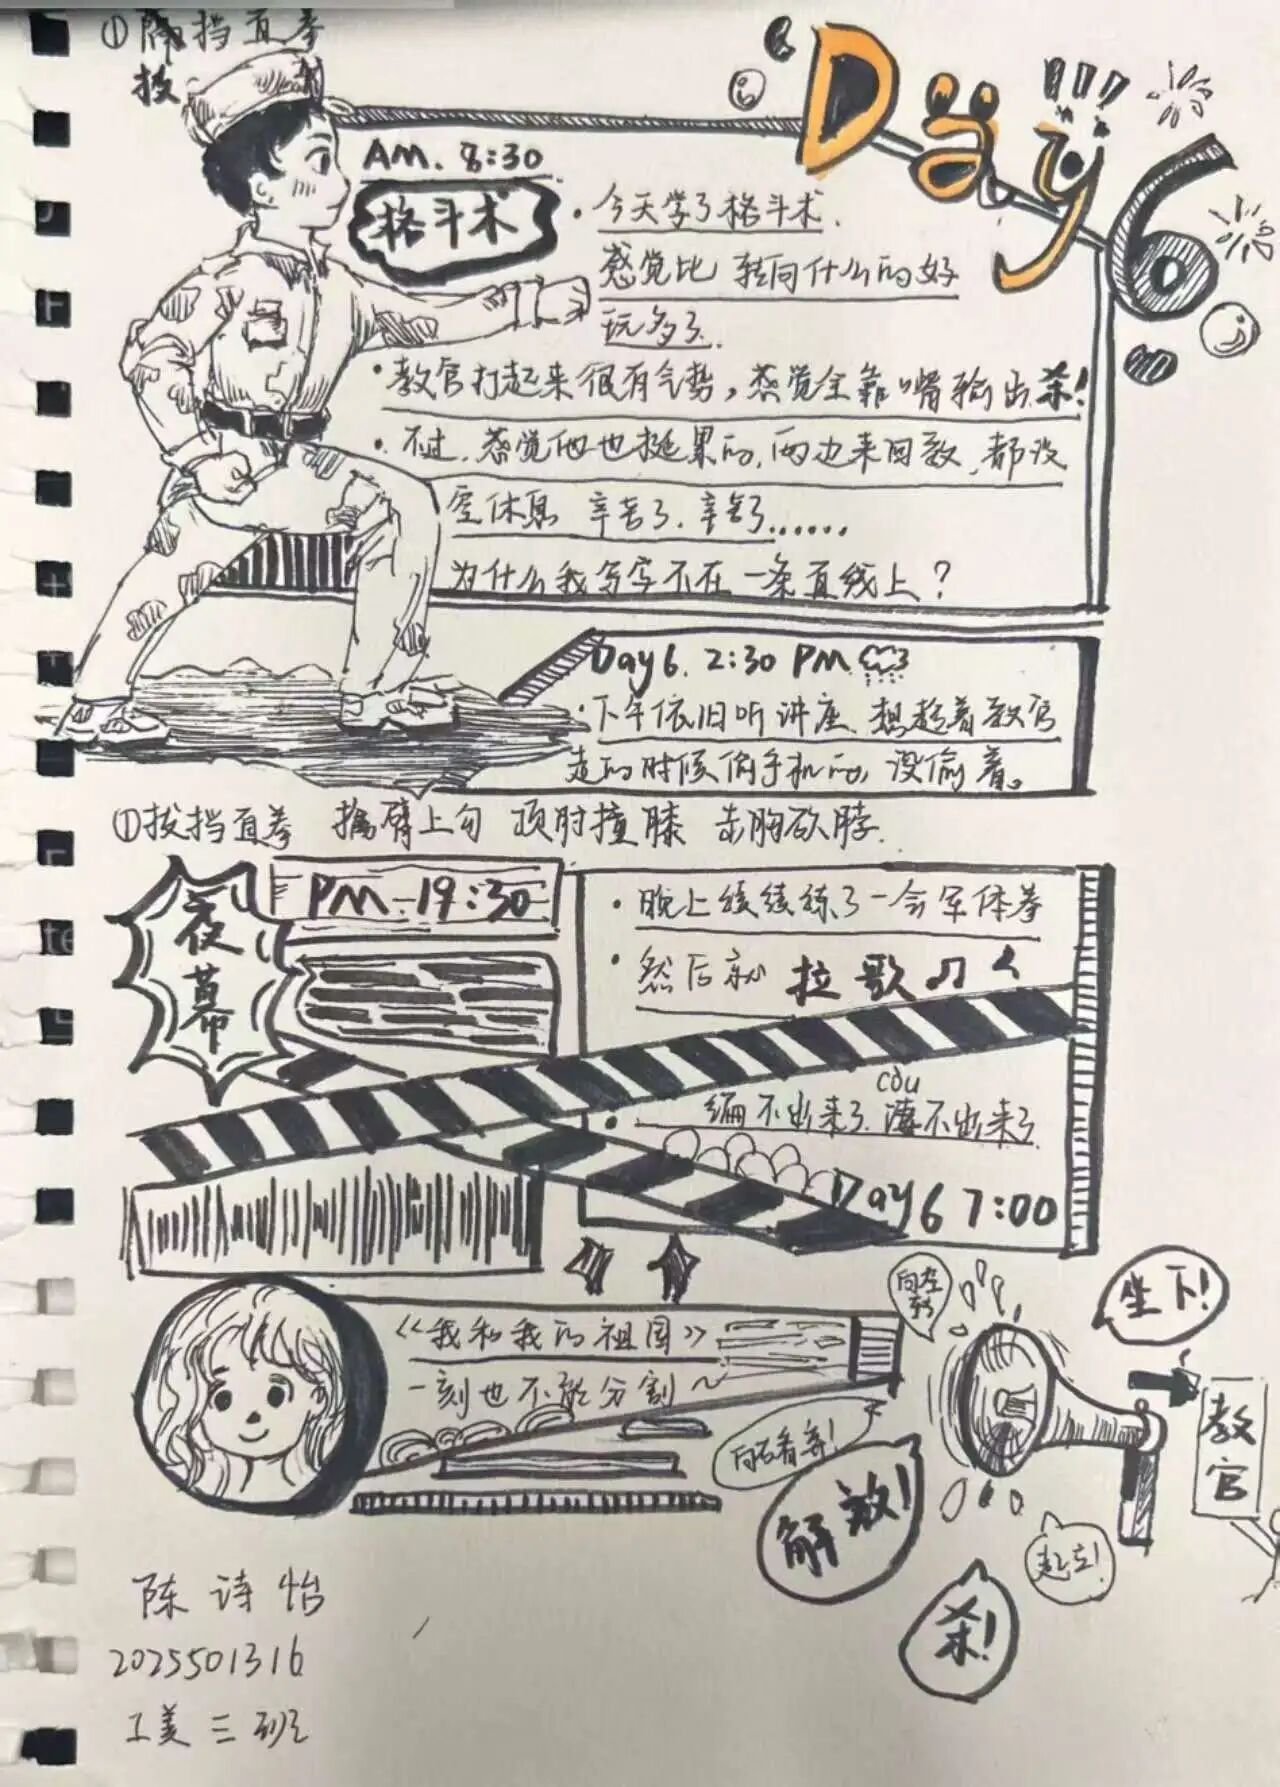 ①隔挡直拳
拔
Day 6
AM. 8:30
格斗术
·今天学了格斗术.
感觉比 转向什么的好
玩多了.
·教官打起来很有气势,感觉全靠嘴输出杀!
·不过,感觉他也挺累的,两边来回教,都没
空休息 辛苦了,辛苦了......
为什么我写字不在一条直线上?
Day6. 2:30 PM
·下午依旧听讲座 想趁着教官
走的时候偷手机的,没偷着。
①拔挡直拳 擒臂上勾 顶肘撞膝 击胸砍脖.
夜幕
PM-19:30
·晚上继续练了一会军体拳
·然后就 拉歌♫
còu
·编不出来了.凑不出来了
Day6 7:00
《我和我的祖国》
一刻也不能分割～
向左转
坐下!
教官
向右看齐!
解散!
起立!
杀!
陈诗怡
2025501316
工美三班